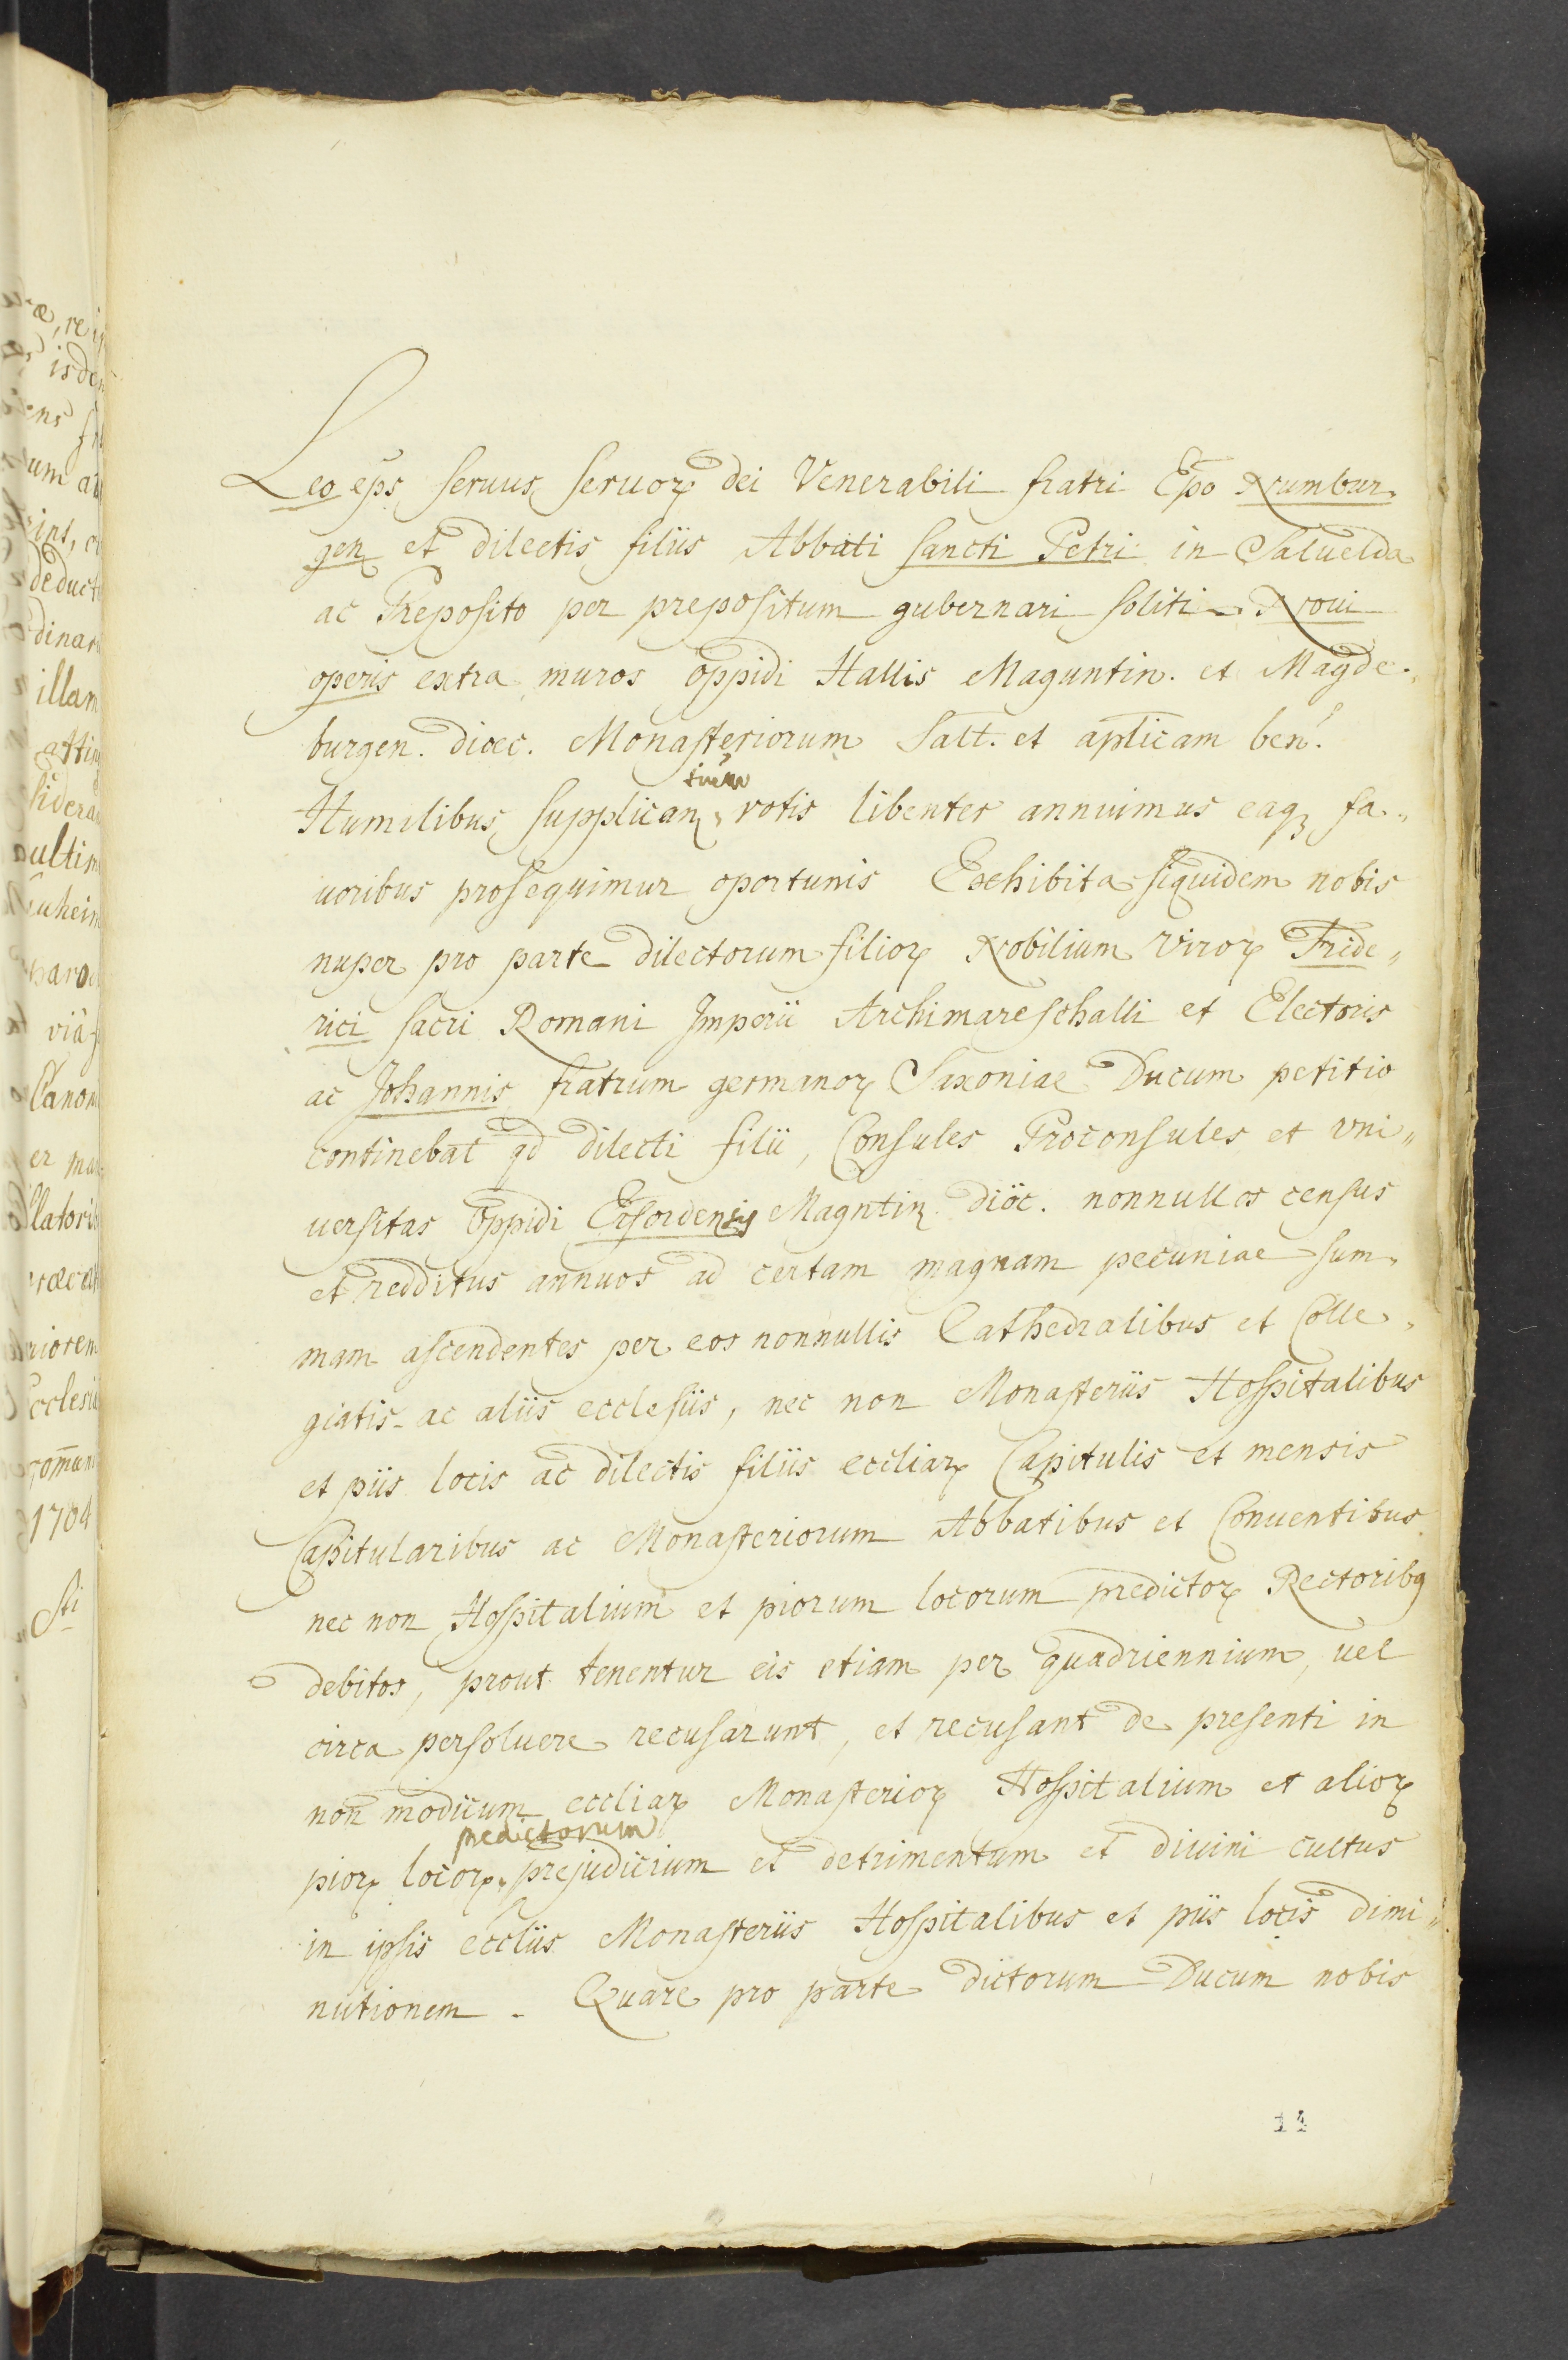 Leo eps seruus seruoꝝ dei Venerabili fratri Epo Numbur.
gen et dilectis filiis Abbati sancti Petri in Saluelda
ac Preposito per prepositum gubernari soliti Noui
operis extra muros oppidi Hallis Maguntin. et Magde.
burgen. dioec. Monasteriorum Salt. et aplicam ben.
Humilibus supplican votis libenter annuimus eaqꝫ fa„
uoribus prosequimur oportunis Exhibita siquidem nobis
nuper pro parte dilectorum filioꝝ Nobilium viroꝝ Fride„
rici sacri Romani Imperii Archimareschalli et Electoris
ac Johannis fratrum germanoꝝ Saxoniae Ducum petitio
continebat qd dilecti filii, Consules Proconsules et vni„
uersitas oppidi Erfordensis Magntin dioc. nonnullos census
et redditus annuos ad certam magnam pecuniae sum„
mam ascendentes per eos nonnullis Cathedralibus et Colle„
giatis ac aliis ecclesiis, nec non Monasteriis Hospitalibus
et piis locis ac dilectis filiis eccliaꝝ Capitulis et mensis
Capitularibus ac Monasteriorum Abbatibus et Conuentibus
nec non Hospitalium et piorum locorum predictoꝝ Rectoribꝯ
debitos, prout tenentur eis etiam per quadriennium, uel
circa persoluere recusarunt, et recusant de presenti in
non modicum eccliaꝝ Monasterioꝝ Hospitalium et alioꝝ
predictorum
pioꝝ locoꝝ prejudicium et detrimentum et diuini cultus
in ipsis eccliis Monasteriis Hospitalibus et piis locis dimi„
nutionem. Quare pro parte dictorum Ducum nobis
14
isde
um a
deduct
dinar
illam
ultim
viâ
Canoni
latoris
cclesi
1704